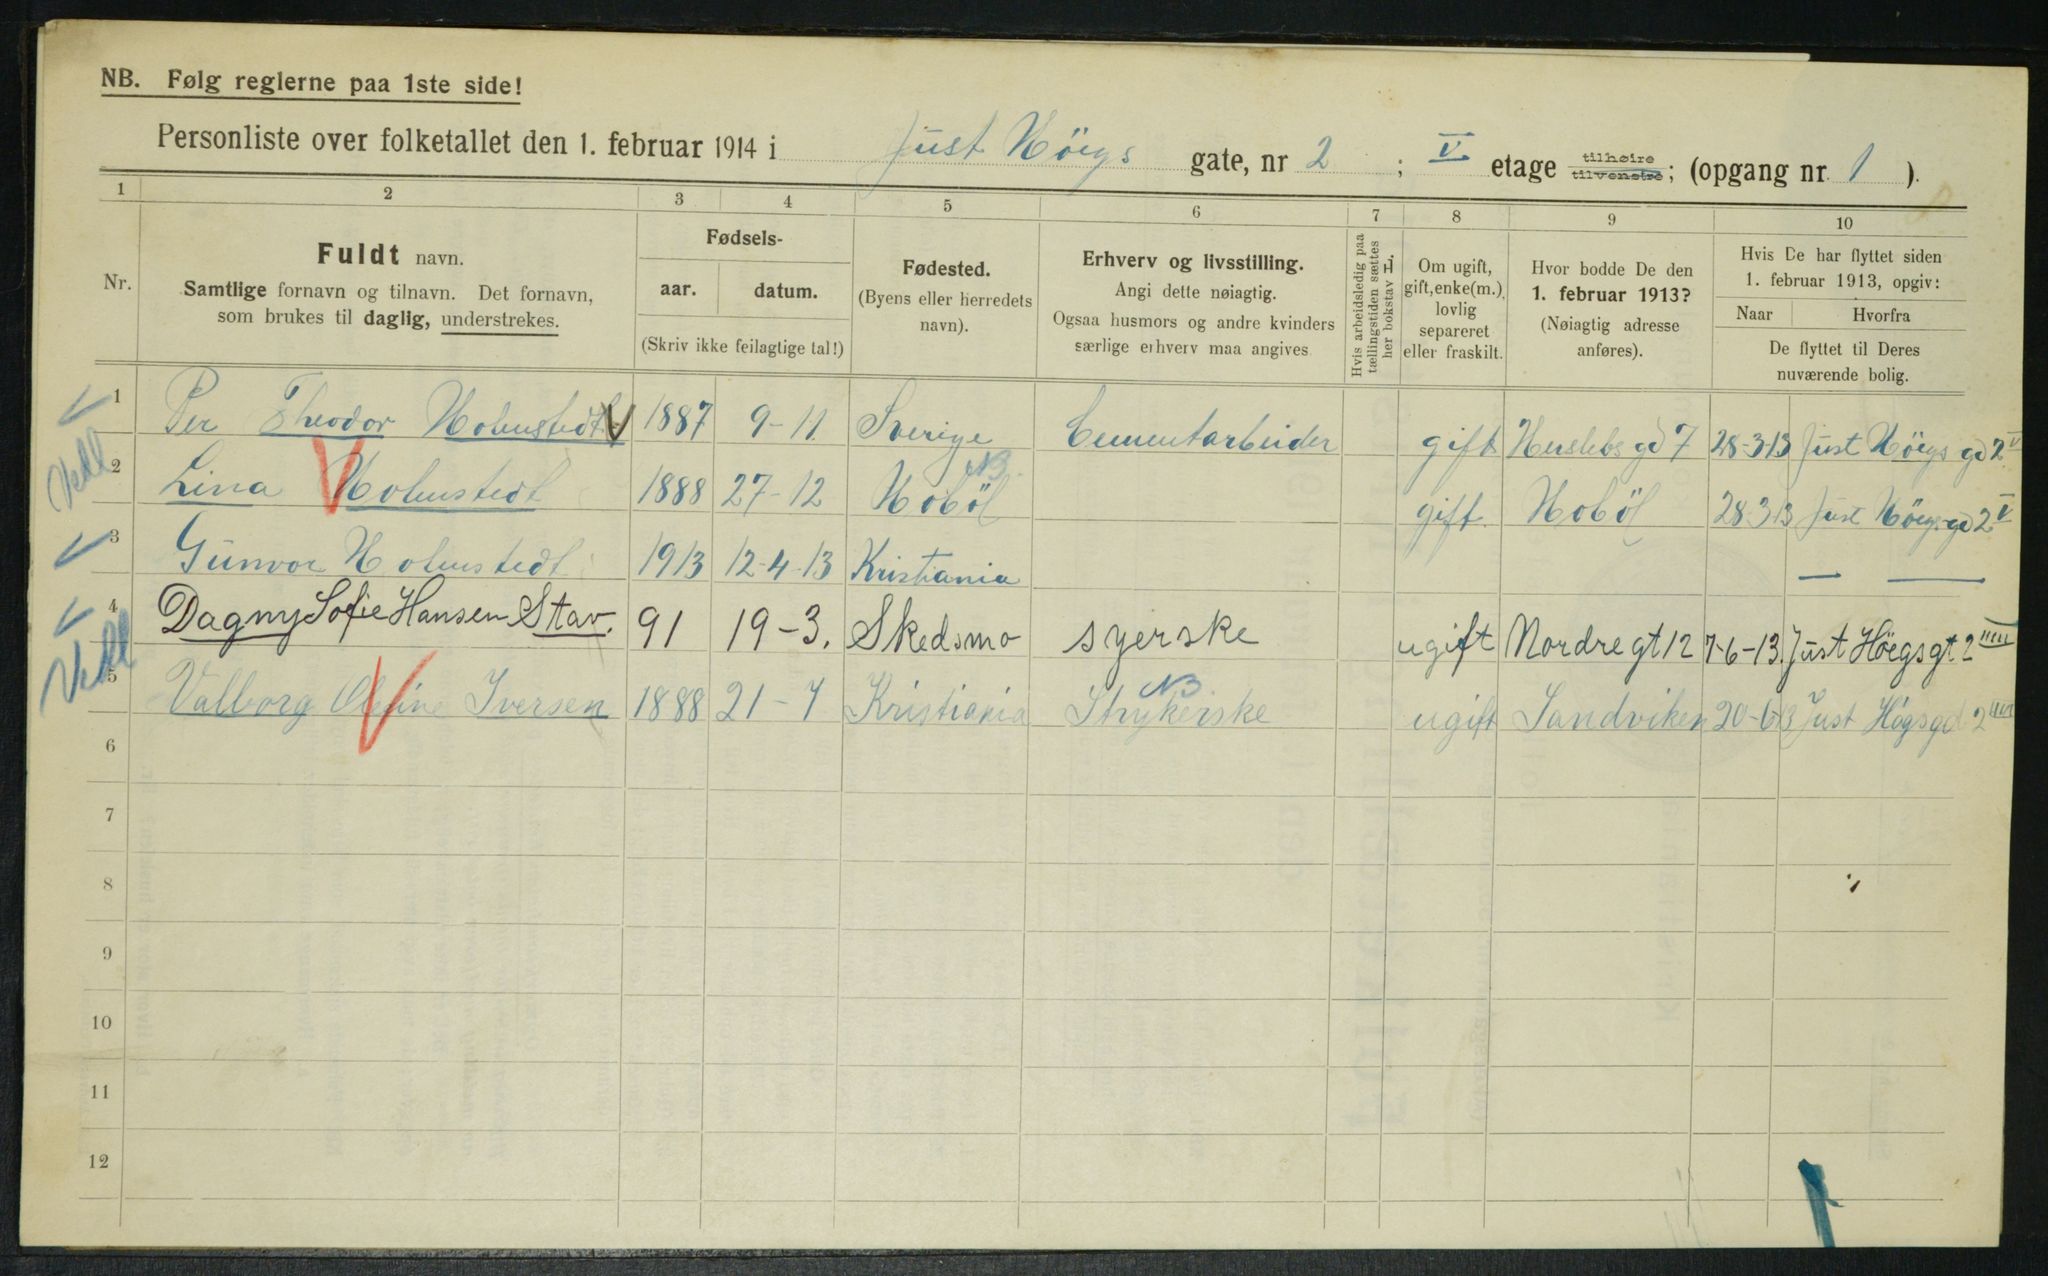 NB. Følg reglerne paa 1ste side!
Personliste over folketallet den 1. februar 1914 i Just Höegs gate, nr 2 ; V etage tilhøire tilvenstre; (opgang nr. 1 ).
1 2 3 4 5 6 7 8 9 10
Nr.
Fuldt navn.
Samtlige fornavn og tilnavn. Det fornavn,
som brukes til daglig, understrekes.
Fødsels-
aar. datum.
(Skriv ikke feilagtige tal!)
Fødested.
(Byens eller herredets
navn).
Erhverv og livsstilling.
Angi dette nøiagtig.
Ogsaa husmors og andre kvinders
særlige erhverv maa angives
Hvis arbeidsledig paa
tællingstiden sættes
her bokstav L.
Om ugift,
gift, enke(m.),
lovlig
separeret
eller fraskilt.
Hvor bodde De den
1. februar 1913?
(Nøiagtig adresse
anføres).
Hvis De har flyttet siden
1. februar 1913, opgiv:
Naar Hvorfra
De flyttet til Deres
nuværende bolig.
1 Per Theodor Holmstedt 1887 9-11 Sverige Cementarbeider gift Herslebs gd 7 28-3-13 Just Höegs gd 2 V
2 Lina Holmstedt 1888 27-12 Hoböl NB. gift Hoböl 28.3.13 Just Höegs gd 2 V
3 Gunvor Holmstedt 1913 12-4-13 Kristiania — —
4 Dagny Sofie Hansen Stav. 91 19-3. Skedsmo syerske ugift Nordre gt 12 7-6-13. Just Höegsgt 2
5 Valborg Iversen 1888 21-7 Kristiania Strykerske NB ugift Sandviken 20-6-13 Just Högsgd 2
6
7
8
9
10
11
12